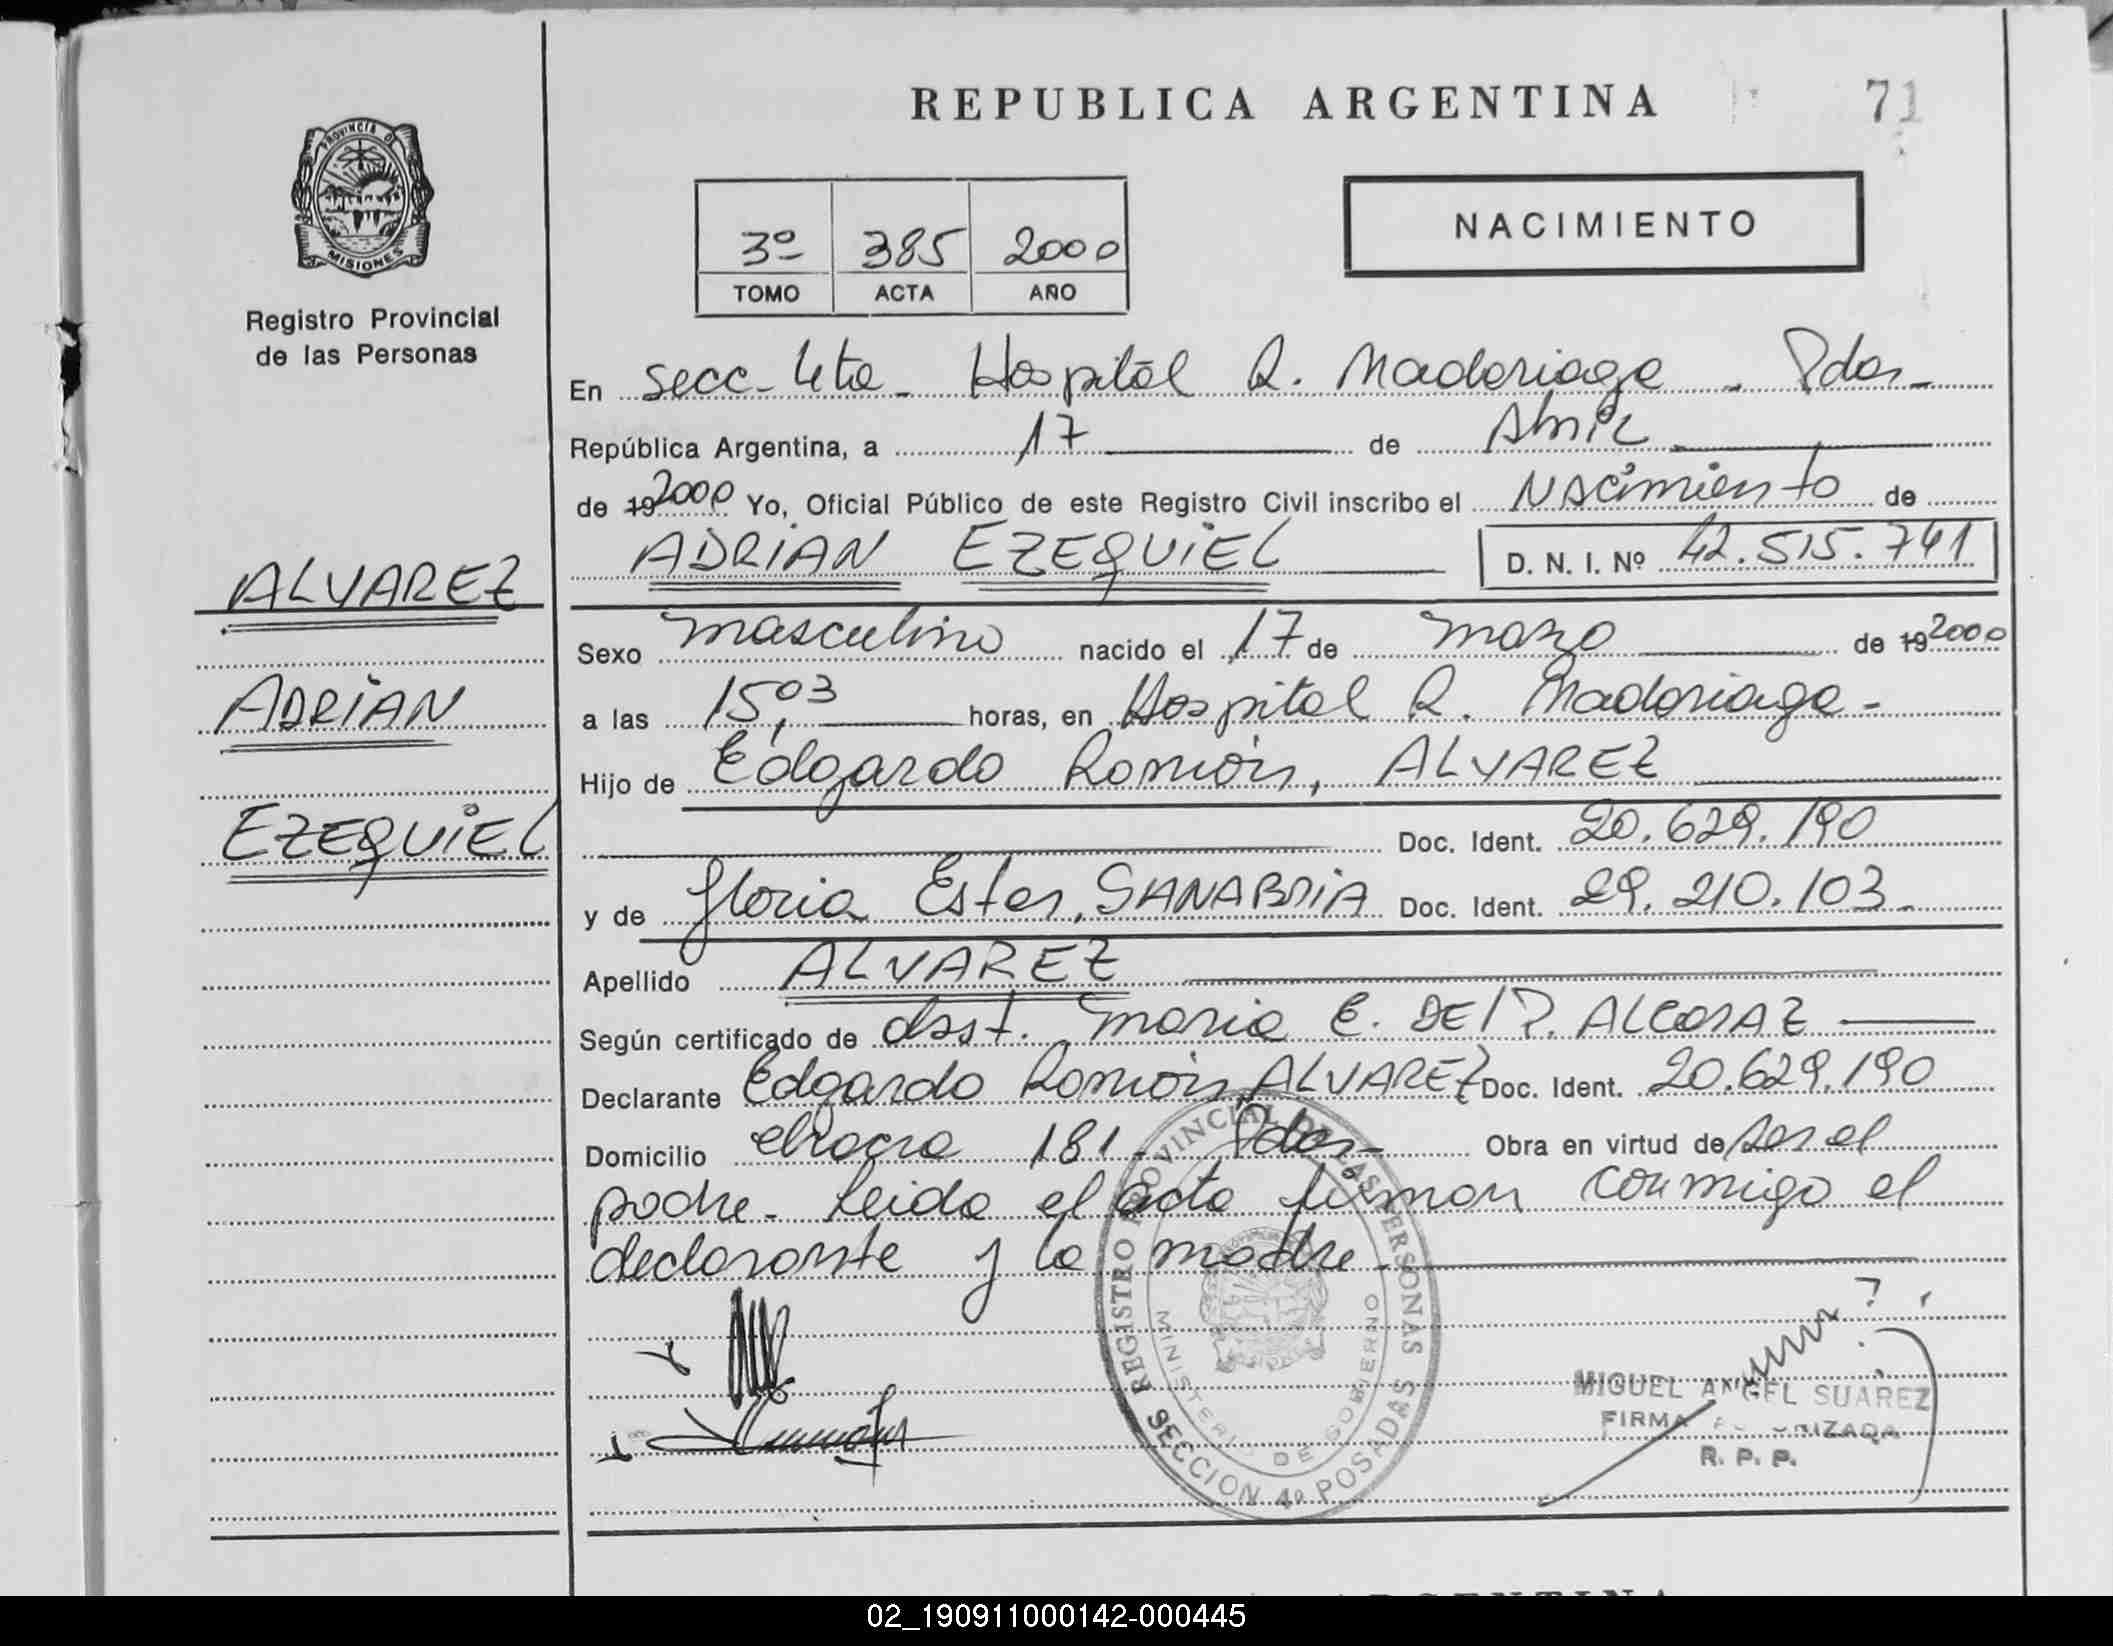 REPUBLICA ARGENTINA
71
PROVINCIA DE
MISIONES
Registro Provincial
de las Personas
NACIMIENTO
3º 385 2000
TOMO ACTA AÑO
En Secc- 4ta - Hospital R. Madariaga - Pdas-
República Argentina, a 17 de Abril
de 19 2000 Yo, Oficial Público de este Registro Civil inscribo el Nacimiento de
ADRIAN EZEQUIEL D. N. I. Nº 42.515.741
ALVAREZ
ADRIAN
EZEQUIEL
Sexo masculino nacido el 17 de marzo de 19 2000
a las 15,03 horas, en Hospital R. Madariaga -
Hijo de Edgardo Ramón, ALVAREZ
Doc. Ident. 20.629.190
y de Gloria Ester, SANABRIA Doc. Ident. 29.210.103-
Apellido ALVAREZ
Según certificado de obst. Maria E. DE P. ALCARAZ
Declarante Edgardo Ramón, ALVAREZ Doc. Ident. 20.629.190
Domicilio Chacra 181 - Pdas- Obra en virtud de ser el
padre - Leida el acta firman conmigo el
declarante y la madre -
REGISTRO PROVINCIAL DE LAS PERSONAS
MINISTERIO DE GOBIERNO
SECCION 4º POSADAS
MIGUEL ANGEL SUAREZ
FIRMA AUTORIZADA
R. P. P.
ARGENTINA
02_190911000142-000445